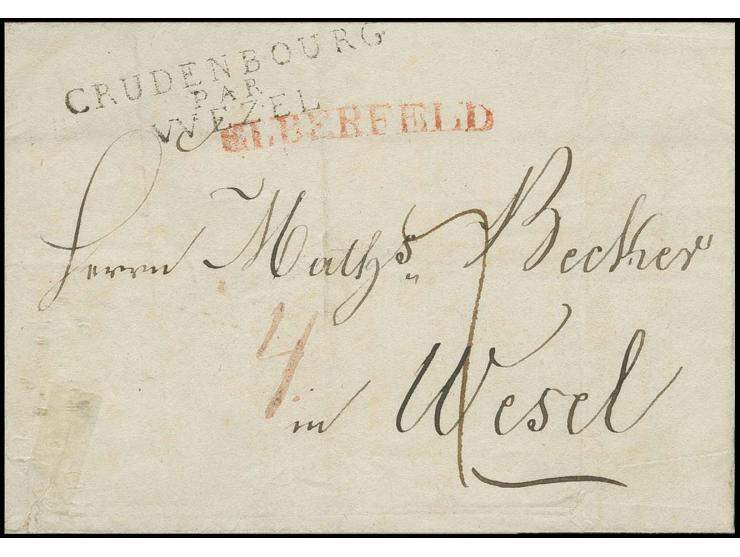 CRUDENBOURG
PAR
WEZEL
ELBERFELD
Herrn Maths. Becker
4
in Wesel